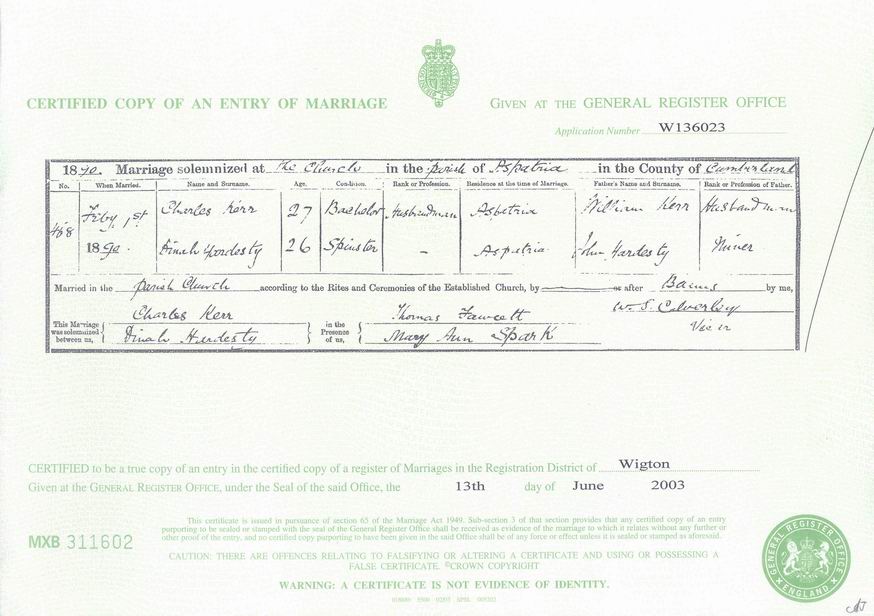 CERTIFIED COPY OF AN ENTRY OF MARRIAGE
GIVEN AT THE GENERAL REGISTER OFFICE
Application Number W136023
1890. Marriage solemnized at the Church in the parish of Aspatria in the County of Cumberland
No. When Married. Name and Surname. Age. Condition. Rank or Profession. Residence at the time of Marriage. Father's Name and Surname. Rank or Profession of Father.
468 Feby 1st Charles Kerr 27 Bachelor Husbandman Aspatria William Kerr Husbandman
1890. Dinah Hardesty 26 Spinster – Aspatria John Hardesty Miner
Married in the parish Church according to the Rites and Ceremonies of the Established Church, by or after Banns by me,
This Marriage was solemnized between us, Charles Kerr in the Presence of us, Thomas Fawcett W. S. Calverley
Dinah Hardesty Mary Ann Spark Vicar
CERTIFIED to be a true copy of an entry in the certified copy of a register of Marriages in the Registration District of Wigton
Given at the GENERAL REGISTER OFFICE, under the Seal of the said Office, the 13th day of June 2003
MXB 311602
This certificate is issued in pursuance of section 65 of the Marriage Act 1949. Sub-section 3 of that section provides that any certified copy of an entry
purporting to be sealed or stamped with the seal of the General Register Office shall be received as evidence of the marriage to which it relates without any further or
other proof of the entry, and no certified copy purporting to have been given in the said Office shall be of any force or effect unless it is sealed or stamped as aforesaid.
CAUTION: THERE ARE OFFENCES RELATING TO FALSIFYING OR ALTERING A CERTIFICATE AND USING OR POSSESSING A
FALSE CERTIFICATE. ©CROWN COPYRIGHT
WARNING: A CERTIFICATE IS NOT EVIDENCE OF IDENTITY.
GENERAL REGISTER OFFICE
ENGLAND